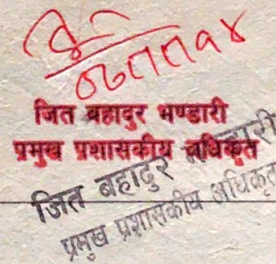 जित बहादुर भण्डारी
प्रमुख प्रशासकीय अधिकृत
जित बहादुर भण्डारी
प्रमुख प्रशासकीय अधिकृत